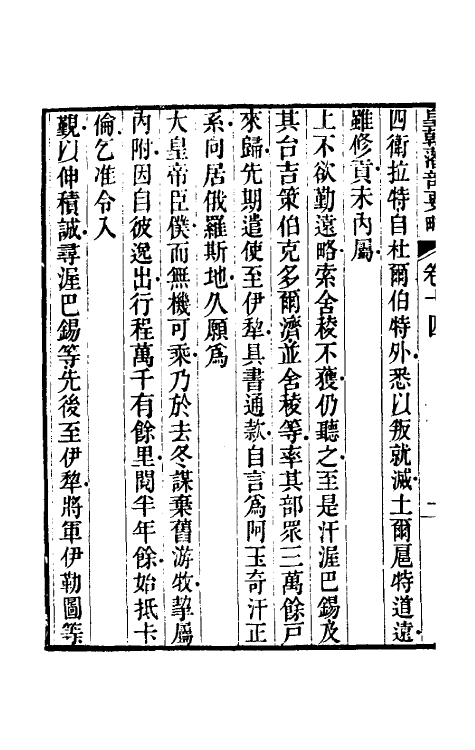 皇朝藩部要略 卷十四
四衛拉特自杜爾伯特外悉以叛就滅土爾扈特道遠
雖修貢未內屬
上不欲勤遠略索舍稜不獲仍聽之至是汗渥巴錫及
其台吉策伯克多爾濟並舍稜等率其部眾三萬餘戶
來歸先期遣使至伊犂具書通款自言爲阿玉奇汗正
系向居俄羅斯地久願爲
大皇帝臣僕而無機可乘乃於去冬謀棄舊游牧挈屬
內附因自彼逸出行程萬千有餘里閱半年餘始抵卡
倫乞准令入
覲以伸積誠尋渥巴錫等先後至伊犂將軍伊勒圖等